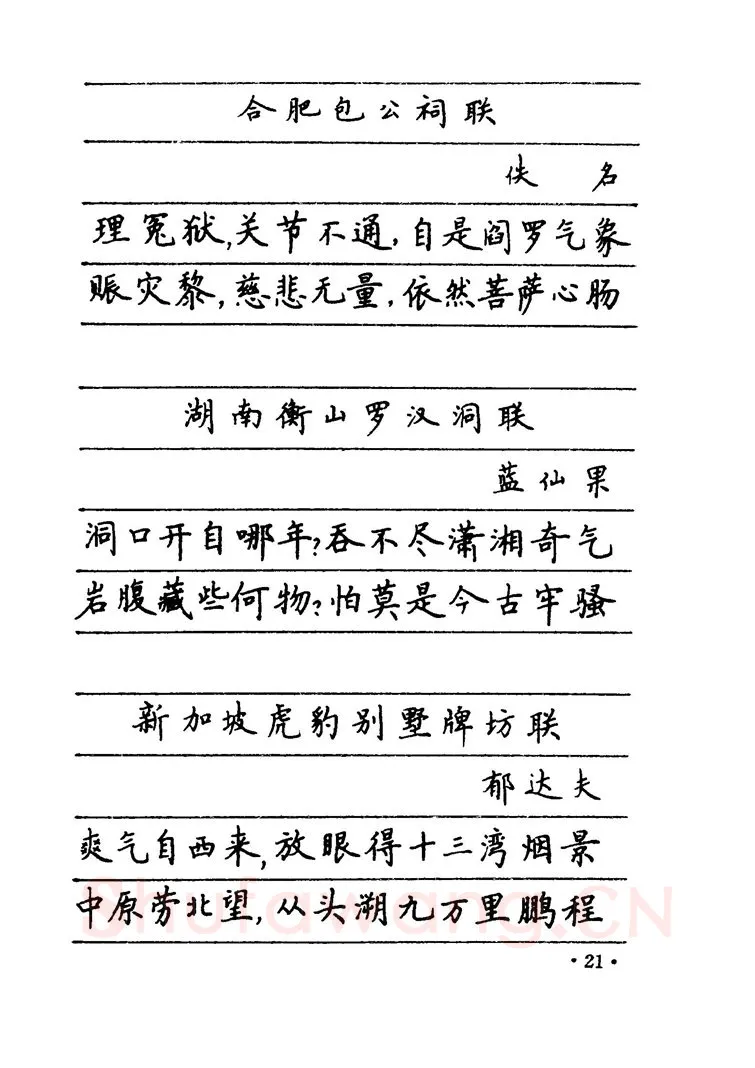 合肥包公祠联
佚 名
理冤狱,关节不通,自是阎罗气象
赈灾黎,慈悲无量,依然菩萨心肠
湖南衡山罗汉洞联
蓝仙果
洞口开自哪年?吞不尽潇湘奇气
岩腹藏些何物?怕莫是今古牢骚
新加坡虎豹别墅牌坊联
郁达夫
爽气自西来,放眼得十三湾烟景
中原劳北望,从头溯九万里鹏程
Shufawang.CN
·21·